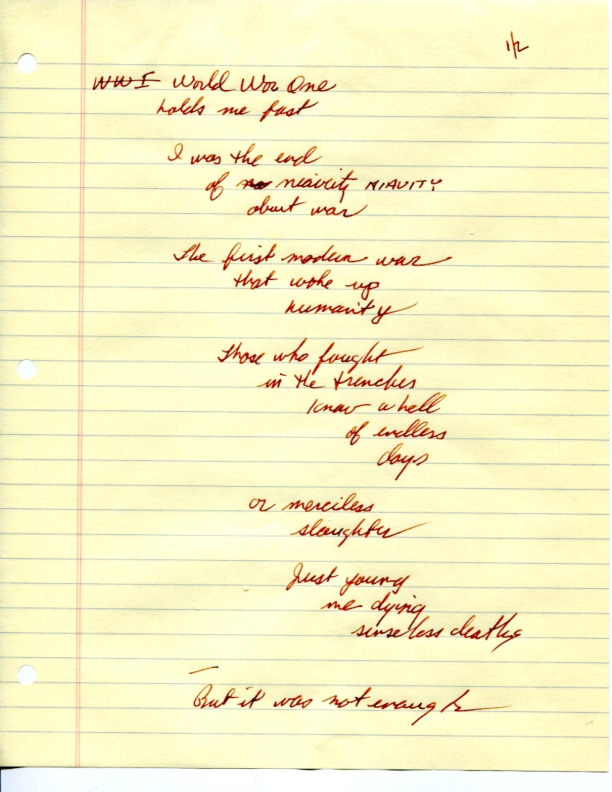 1/2
WWI World War One
holds me fast
I was the end
of na niavity NIAVITY
about war
The first modern war
that woke up
humanity
Those who fought
in the trenches
know a hell
of endless
days
or merciless
slaughter
Just young
me dying
senseless deaths
—
But it was not enough